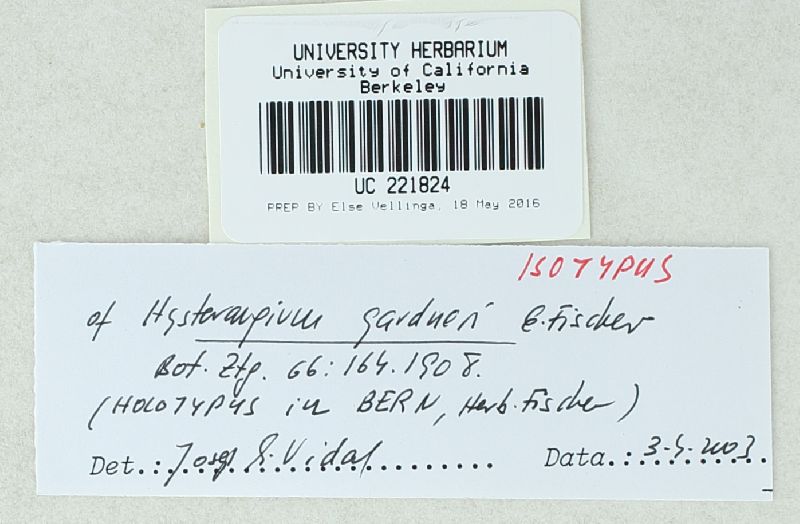 UNIVERSITY HERBARIUM
University of California
Berkeley
UC 221824
PREP BY Else Vellinga, 18 May 2016
ISOTYPUS
of Hysterangium gardneri E. Fischer
Bot. Ztg. 66: 164. 1908.
(HOLOTYPUS in BERN, Herb. Fischer)
Det.: Vidal
Data.: 2003